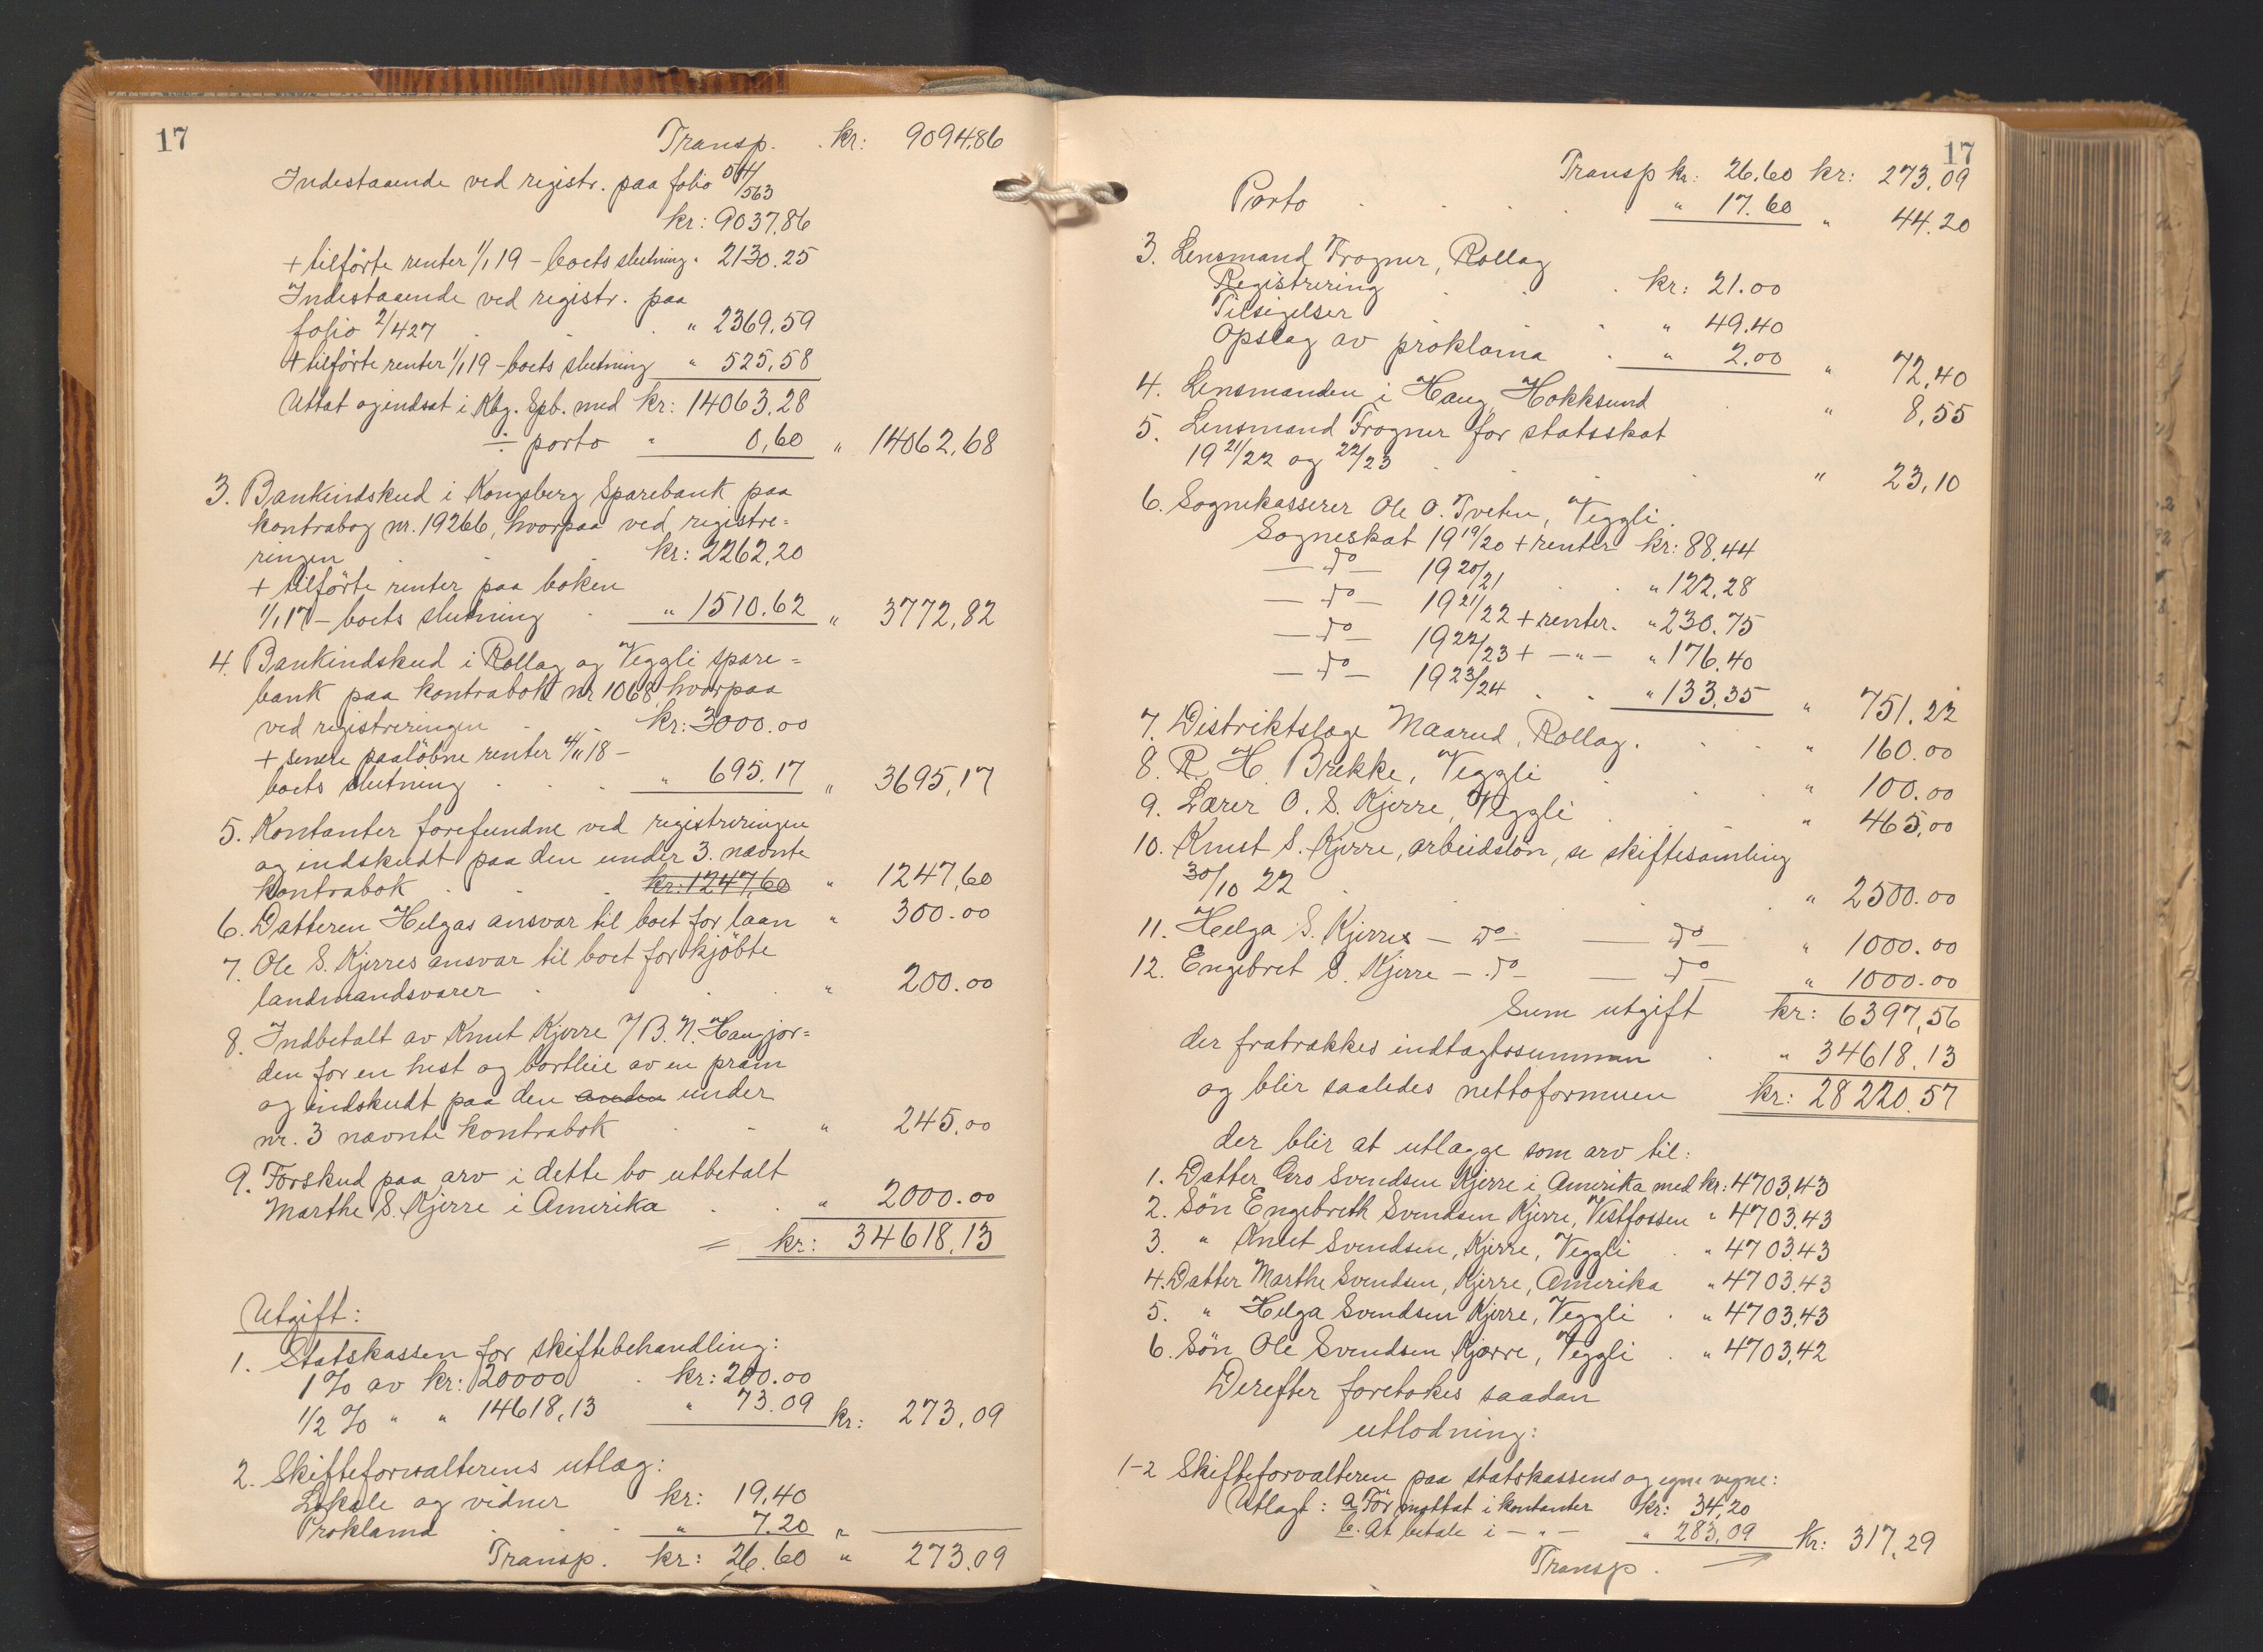 17
Transp. . kr: 9094.86
Indestaaende ved registr. paa folio 514/563
kr: 9037,86
+ tilförte renter 1/1 19 – boets slutning " 2130.25
Indestaaende ved registr. paa
folio 2/427 . . . " 2369,59
+ tilförte renter 1/1 19 – boets slutning " 525,58
Uttat og indsat i Kbg. Spb. med kr: 14063,28
÷ porto " 0,60 " 14062,68
3. Bankindskud i Kongsberg Sparebank paa
kontrabog nr. 19266, hvorpaa ved registre=
ringen . . kr: 2262,20
+ tilförte renter paa boken
1/1 17 – boets slutning . " 1510.62 " 3772,82
4. Bankindskud i Rollag og Veggli spare=
bank paa kontrabok nr 1068 hvorpaa
ved registreringen . . kr: 3000.00
+ senere paalöbne renter 4/11 18 –
boets slutning . . . " 695.17 " 3695,17
5. Kontanter forefundne ved registreringen
og indskudt paa den under 3. nævnte
kontrabok . . . kr: 1247,60 " 1247,60
6. Datteren Helgas ansvar til boet for laan " 300.00
7. Ole S. Kjerres ansvar til boet for kjöbte
landmandsvarer . . . " 200.00
8. Indbetalt av Knut Kjerre f/ B. N. Haugjor=
den for en hest og bortleie av en pram
og indskudt paa den anden under
nr. 3 nævnte kontrabok . . " 245.00
9. Forskud paa arv i dette bo utbetalt
Marthe S. Kjerre i Amerika . . " 2000.00
= kr: 34618,13
Utgift:
1. Statskassen for skiftebehandling:
1 % av kr: 20000 . kr: 200.00
1/2 % " " 14618,13 " 73.09 kr: 273,09
2. Skifteforvalterens utlæg:
Lokale og vidner kr: 19.40
Proklama . . . " 7.20 "
Transp. kr: 26.60 " 273.09
17
Transp kr: 26.60 kr: 273,09
Porto . . . . " 17.60 " 44.20
3. Lensmand Frogner, Rollag
Registrering . . . kr: 21.00
Tilsigelser . . " 49.40
Opslag av proklama . " 2.00 " 72,40
4. Lensmanden i Haug, Hokksund . " 8,55
5. Lensmand Frogner for statsskat
19 21/22 og 22/23 . . . " 23,10
6. Sognekasserer Ole O. Tveten, Veggli.
Sogneskat 19 19/20 + renter kr: 88.44
— do — 19 20/21 . . " 122,28
— do — 19 21/22 + renter. " 230.75
— do — 19 22/23 + — " — " 176.40
— do — 19 23/24 . . " 133,35 " 751.22
7. Distriktslæge Maarud, Rollag. . . . " 160.00
8. R. H. Brekke, Veggli . . . " 100.00
9. Lærer O. S. Kjerre, Veggli . . " 465,00
10. Knut S. Kjerre, arbeidslön, se skiftesamling
30/10 22 . . . . " 2500.00
11. Helga S. Kjerres — do — — do — " 1000.00
12. Engebret S. Kjerre — do — — do — " 1000.00
Sum utgift kr: 6397,56
der fratrækkes indtægtssummen . " 34618.13
og blir saaledes nettoformuen kr: 28220.57
der blir at utlægge som arv til:
1. Datter Gro Svendsen Kjerre i Amerika med kr: 4703,43
2. Sön Engebreth Svendsen Kjerre, Vestfossen " 4703.43
3. " Knut Svendsen, Kjerre, Veggli . " 4703.43
4. Datter Marthe Svendsen, Kjerre, Amerika " 4703.43
5. " Helga Svendsen Kjerre, Veggli . " 4703,43
6. Sön Ole Svendsen Kjærre, Veggli . " 4703,42
Derefter foretokes saadan
utlodning:
1-2 Skifteforvalteren paa statskassens og egne vegne:
Utlagt: a. För mottat i kontanter kr: 34,20
b. At betale i — " — " 283,09 Kr: 317,29
Transp.